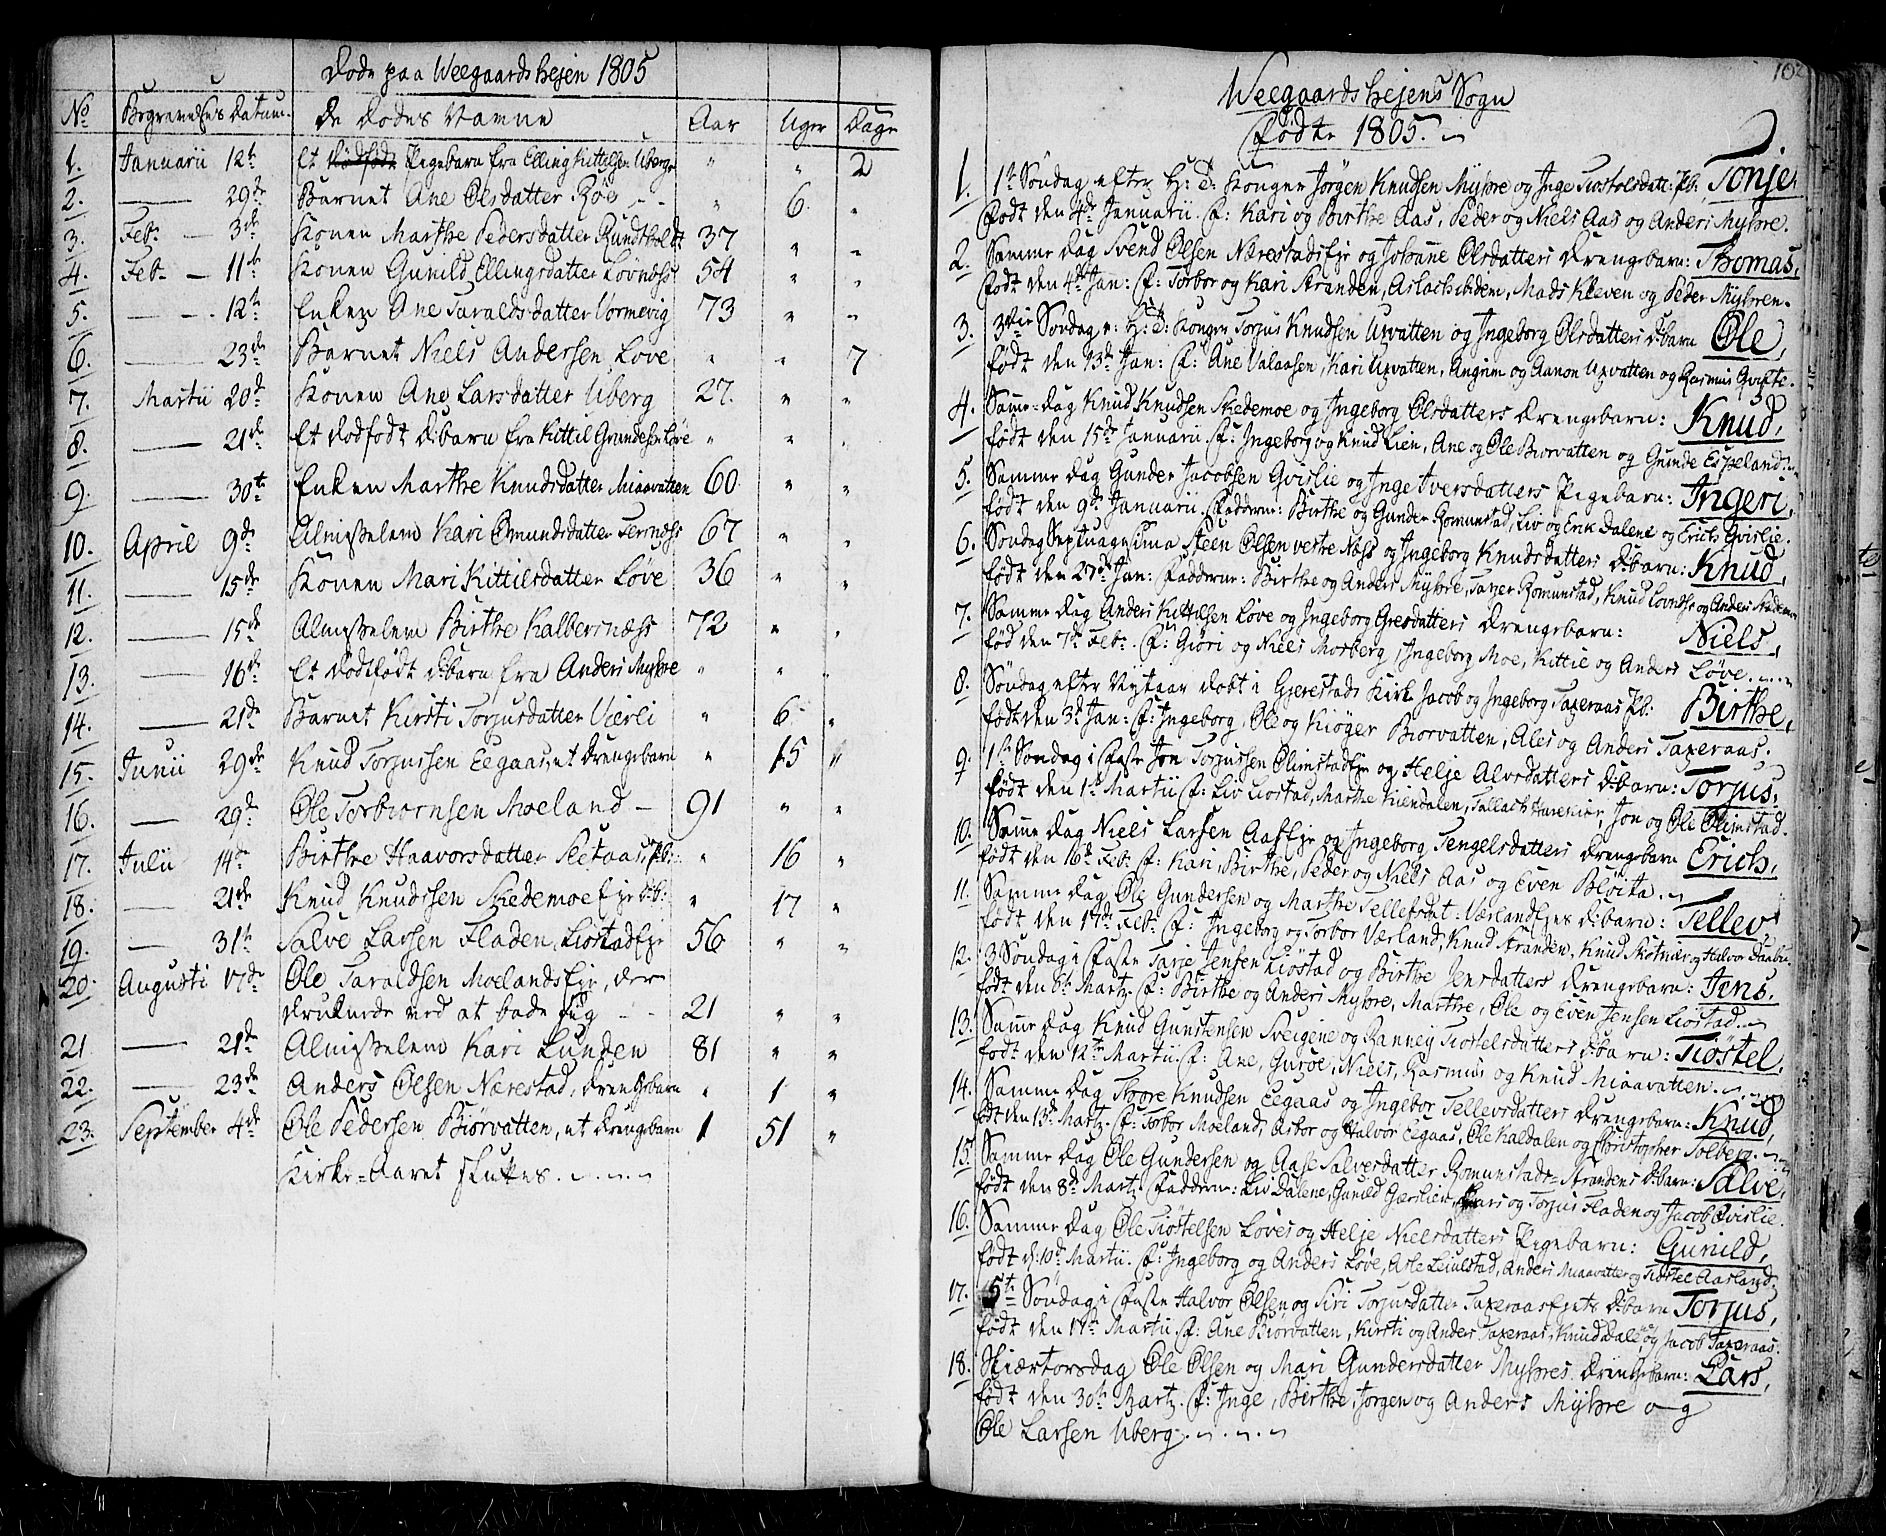 Døde paa Weegaardshejen 1805
No Begravelses Datum. De Dødes Navne Aar Uger Dage
1. Januarii 12te Et Pigebarn fra Elling Kittilsen Uberge " " 2
2. — 29de Barnet Ane Olsdatter Røe - - " 6. "
3. Feb: — 3de Konen Marthe Pedersdatter Rundtholdt 37 " "
4. Feb. — 11te Konen Gunild Ellingsdatter Løvnæss 54 " "
5. — 12te Enken Ane Taraldsdatter Vormevig 73 " "
6. — 23de Barnet Niels Andersen Løve " " 7
7. Martii 20de Konen Ane Larsdatter Uberg 27. " "
8. — 21de Et dødfødt d:barn fra Kittil Grundesen Løve " " "
9. — 30te Enken Marthe Knudsdatter Miaavatten 60 " "
10. April 9de Almisselem Kari Omundsdatter Ternæss 67 " "
11. — 15de Konen Mari Kittilsdatter Løve 36 " "
12. — 15de Almisselem Birthe Kalbersnæss 72 " "
13. — 16de Et dødfødt d:barn fra Anders Myhre " " "
14. — 21de Barnet Kirsti Torjusdatter Vierli " 6 "
15. Junii 29de Knud Torjussen Eegaas, et drengebarn " 15 "
16. — 29de Ole Torbiørnsen Moeland — 91 " "
17. Julii 14de Birthe Haavorsdatter Seetaas, Pb: " 16 "
18. — 21de Knud Knudssen Skedemoe Ejr d:b: " 17 "
19. — 31te Salve Larsen Fladen, Liøstad Ejr 56 " "
20. Augusti 17de Ole Taraldsen Moelands Ejr, der
druknede ved at bade sig - - 21 " "
21 — 21de Almisselem Kari Lunden 81 " "
22. — 23de Anders Olsen Nærestad, drengebarn " 1 "
23. September 4de Ole Pedersen Biørvatten, et drengebarn 1 51 "
Kirke-Aaret sluttes.
102
Weegaardshejens Sogn
Fødte 1805.
1. 1te Søndag efter H: 3: Konger Jørgen Knudsen Myhre og Inge Tiostolsdatt: Pb, Tonje,
født den 4de Januarii. F: Kari og Birthe Aas, Peder og Niels Aas og Anders Myhre.
2. Samme Dag Svend Olsen Nærestadsejr og Johane Olsdatters Drengebarn: Thomas,
født den 4de Jan: F: Torbor og Kari Stranden, Aslach ibidem, Mads Kleven og Peder Myhren.
3. 3die Søndag e: H: 3: Konger Torjus Knudsen Uxvatten og Ingeborg Olsdatters d:barn Ole,
født den 13de Jan: F: Ane Valaasen, Kari Uxvatten, Angrim og Aanon Uxvatten og Rasmus Qvifte.
4. Same-Dag Knud Knudsen Skedemoe og Ingeborg Olsdatters drengebarn: Knud,
født den 15de Januarii. F: Ingeborg og Knud Lien, Ane og Ole Biorvatten og Gunde Espeland.
5. Samme Dag Gunder Jacobsen Qvislie og Inge Iversdatters Pigebarn: Ingeri,
født den 9de Januarii. Faddern: Birthe og Gunder Romunstad, Liv og Erik Dalene og Erich Qvislie.
6. Søndag Septuagesima Steen Olsen vestre Næss og Ingeborg Knudsdatters d:barn: Knud,
født den 27de Jan: Fadderne: Birthe og Anders Myhre, Taxer Romunstad, Knud Lovnæss og Anders Skedemoe
7. Samme Dag Anders Kittilsen Løve og Ingeborg Gresdatters drengebarn: Niels,
fød den 7de Feb:. F: Giøri og Niels Morberg, Ingeborg Moe, Kittil og Anders Løve.
8. Søndag efter Nytaar døbt i Gjerestads Kirk Jacob og Ingeborg Taxeraas Pb: Birthe,
født den 3de Jan: F: Ingeborg, Ole og Kiøger Biorvatten, Ales og Anders Taxeraas.
9. 1te Søndag i Faste Jon Torjussen Olimstadejr og Helje Alvsdatters d:barn: Torjus,
født den 1te Martii F: Liv Liøstad, Marthe Kiendalen, Tallach Havekier, Jon og Ole Olimstad.
10. Same Dag Niels Larsen Aas Ejr og Ingeborg Tengelsdatters Drengebarn Erich,
født den 16de Feb: F: Kari, Birthe, Peder og Niels Aas og Even Bløita.
11. Samme Dag Ole Gundersen og Marthe Tellefsdat: Værland Ejres d:barn: Tellev,
født den 17de Feb: F: Ingeborg og Torbor Værland, Knud Stranden, Knud Skøtnier og Halvor
12. 3 Søndag i Faste Tarje Jensen Liøstad og Birthe Jensdatters drengebarn: Jens,
født den 6te Martz. F: Birthe og Anders Myhre, Marthe, Ole og Even Jensen Liøstad.
13. Same Dag Knud Gunstensen Sveigene og Ranneg Tiostelsdatters d:barn: Tiøstel,
født den 12te Martii. F: Ane, Guroe, Niels, Rasmus og Knud Miaavatten.
14. Samme Dag Thore Knudsen Eegaas og Ingebor Tellevsdatters Drengebarn: Knud,
født den 13de Martz. F: Torbor Moeland, Asbor og Halvor Eegaas, Ole Kaldalen og Christopher Solberg.
15. Samme Dag Ole Gundersen og Aase Salvesdatter Romunstads-Strandens d:barn: Salve,
født den 8de Martz. Fadderne: Liv Dalene, Gunild Gierslien, Lars og Torjus Fladen og Jacob Qvislie.
16. Samme Dag Ole Tiøstelsen Løves og Helje Nielsdatters Pigebarn: Gunild,
født d: 10de Martii. F: Ingeborg og Anders Løve, Asle Leiulstad, Anders Miaavatten og Tiøstel Aasland.
17. 5te Søndag i Faste Halvor Olsen og Siri Torjusdatter Taxeraasejets d:barn Torjus,
født den 17de Martii F: Ane Biørvatten, Kirsti og Anders Taxeraas, Knud Dale og Jacob Taxeraas.
18. Skiærtorsdag Ole Olsen og Mari Gundersdatter Myhres drengebarn: Lars,
født den 30te Martz. F: Inge, Birthe, Jørgen og Anders Myhre og
Ole Larsen Uberg.